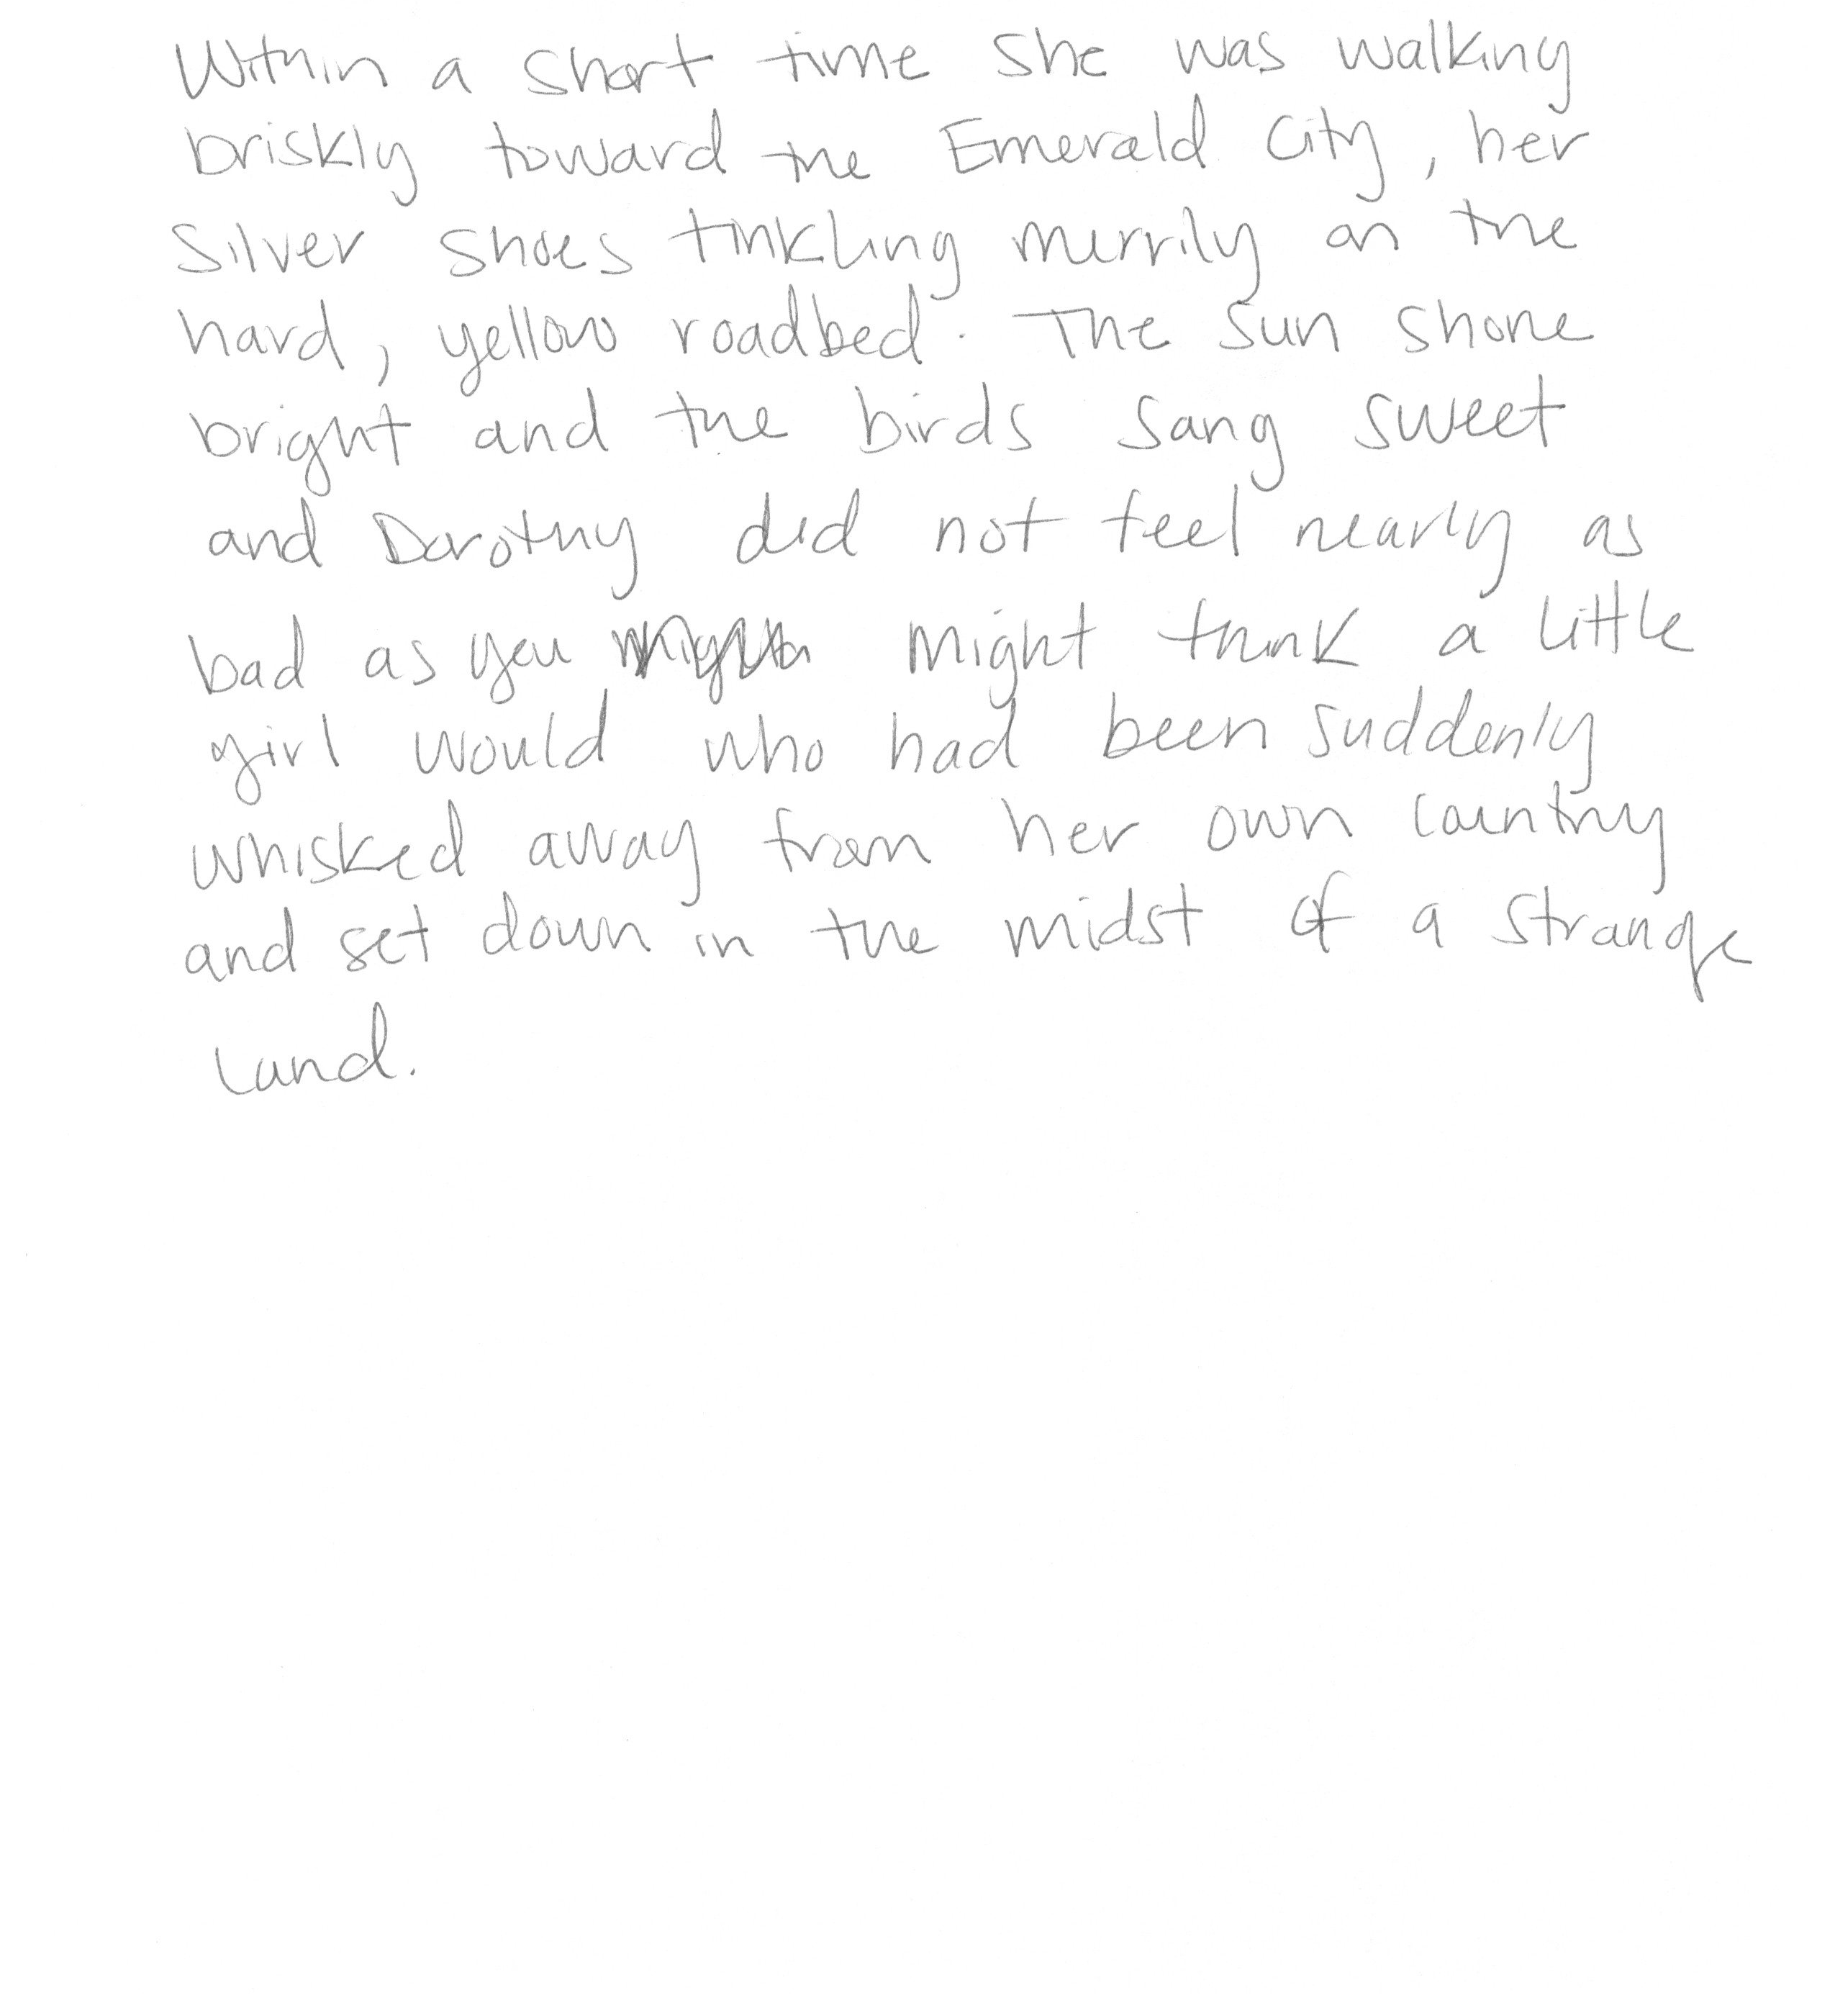 Within a short time she was walking
briskly toward the Emerald City, her
Silver Shoes tinkling merrily on the
hard, yellow roadbed. The sun shone
bright and the birds sang sweet
and Dorothy did not feel nearly as
bad as you might think a little
girl would who had been suddenly
whisked away from her own country
and set down in the midst of a strange
land.